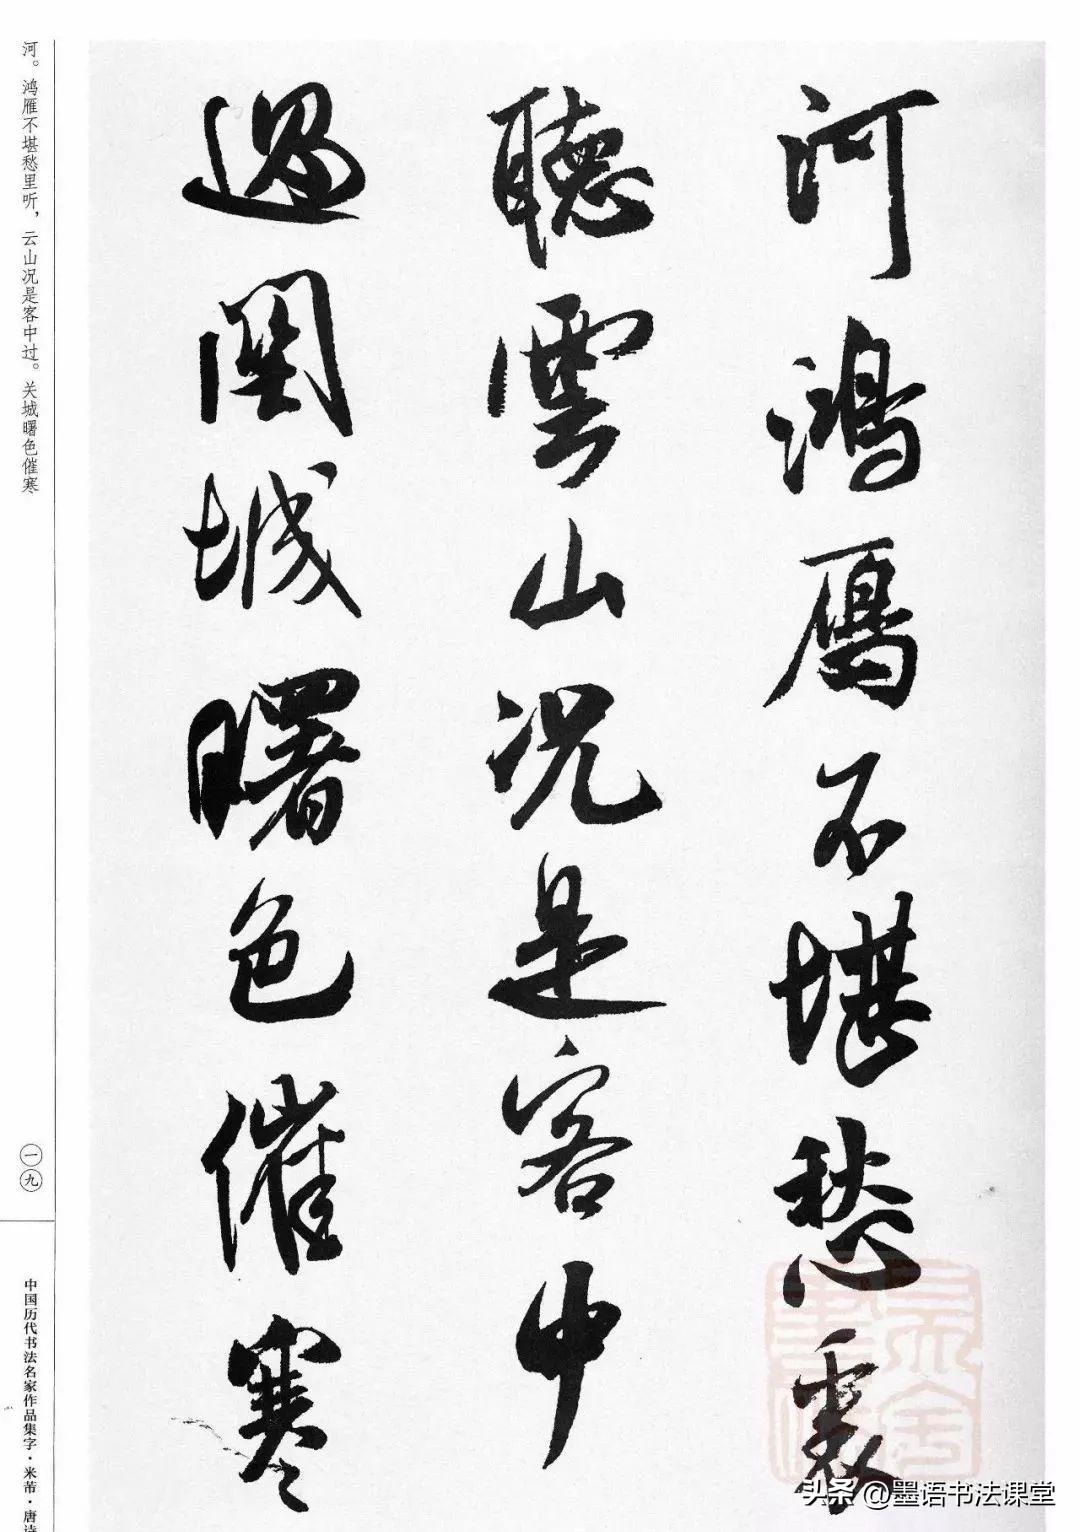 河鴻鴈不堪愁裏
聽雲山况是客中
過關城曙色催寒
河。鸿雁不堪愁里听，云山况是客中过。关城曙色催寒
一九
中国历代书法名家作品集字·米芾·唐诗
头条 @墨语书法课堂